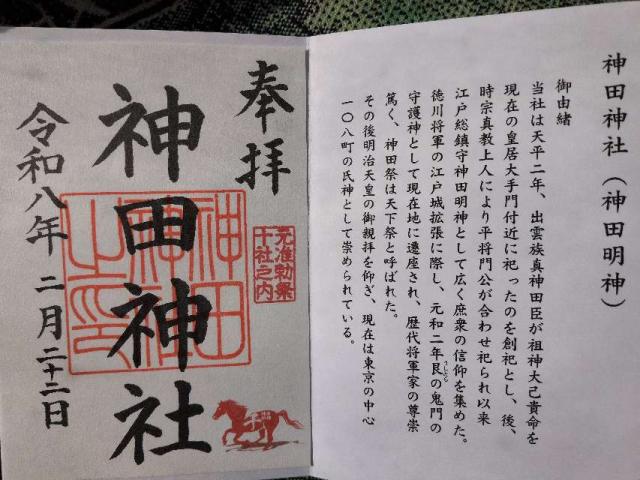 神田神社（神田明神）
御由緒
当社は天平二年、出雲族真神田臣が祖神大己貴命を
現在の皇居大手門付近に祀ったのを創祀とし、後、
時宗真教上人により平将門公が合わせ祀られ以来
江戸総鎮守神田明神として広く庶衆の信仰を集めた。
徳川将軍の江戸城拡張に際し、元和二年艮の鬼門の
うしとら
守護神として現在地に遷座され、歴代将軍家の尊崇
篤く、神田祭は天下祭と呼ばれた。
その後明治天皇の御親拝を仰ぎ、現在は東京の中心
一〇八町の氏神として崇められている。
奉拝
元准勅祭
十社之内
神田神社
神田
神社
之印
令和八年 二月二十二日